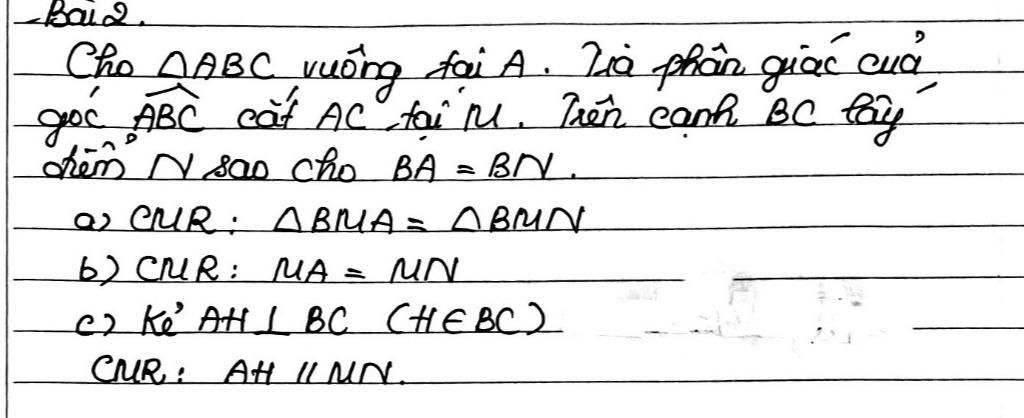 Bài 2.
Cho △ABC vuông tại A. Tia phân giác của
góc ABC cắt AC tại M. Trên cạnh BC lấy
điểm N sao cho BA = BN.
a) CMR: △BMA = △BMN
b) CMR: MA = MN
c) Kẻ AH ⊥ BC (H ∈ BC)
CMR: AH // MN.